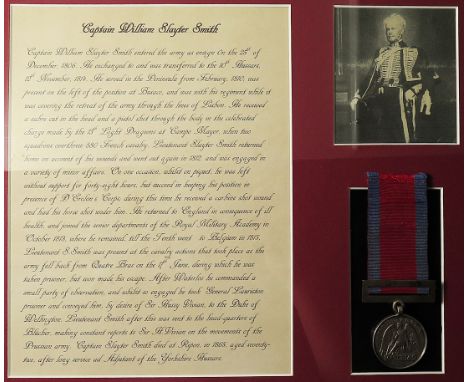 Captain William Slayter Smith
Captain William Slayter Smith entered the army as ensign On the 25th of
December, 1806. He exchanged to and was transferred to the 10th Hussars,
15th November, 1814. He served in the Peninsula from February, 1810, was
present on the left of the position at Busaco, and was with his regiment while it
was covering the retreat of the army through the lines of Lisbon. He received
a sabre cut in the head and a pistol shot through the body in the celebrated
charge made by the 13th Light Dragoons at Campo Mayor, when two
squadrons overthrew 880 French cavalry. Lieutenant Slayter Smith returned
home on account of his wounds and went out again in 1812, and was engaged in
a variety of minor affairs. On one occasion, whilst on piquet, he was left
without support for forty-eight hours, but succeed in keeping his position in
presence of D'Erlon's Corps during this time he received a carbine shot wound
and had his horse shot under him. He returned to England in consequence of ill
health, and joined the senior department of the Royal Military Academy in
October 1813, where he remained, till the Tenth went to Belgium in 1815.
Lieutenant S. Smith was present at the cavalry actions that took place as the
army fell back from Quatre Bras on the 17th June, during which he was
taken prisoner, but soon made his escape. After Waterloo he commanded a
small party of observation, and whilst so engaged he took General Lauriston
prisoner and conveyed him, by desire of Sir Hussy Vivian, to the Duke of
Wellington. Lieutenant Smith after this was sent to the head-quarters of
Blücher, making constant reports to Sir H Vivian on the movements of the
Prussian army. Captain Slayter Smith died at Ripon, in 1865, aged seventy-
two, after long service as Adjutant of the Yorkshire Hussars.